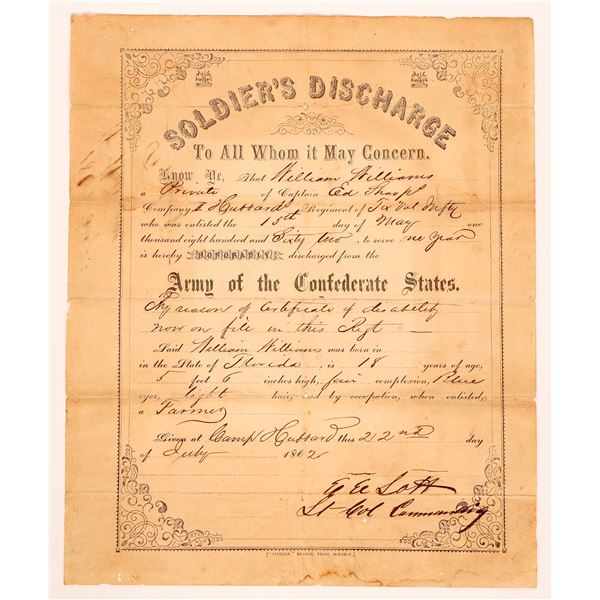 SOLDIER'S DISCHARGE
To All Whom it May Concern.
Know Ye, That William Williams
a Private of Captain Ed Sharp's
Company Hubbard's Regiment of Tx Vol Infty
who was enlisted the 13th day of May one
thousand eight hundred and Sixty two, to serve one Year
is hereby HONORABLY discharged from the
Army of the Confederate States.
By reason of Certificate of disability
now on file in this Regt
Said William Williams was born in
in the State of Florida, is 18 years of age,
5 feet 6 inches high, fair complexion, Blue
eyes, light hair, and by occupation, when enlisted,
a Farmer
Given at Camp Hubbard this 22nd day
of July 1862
Lott
Lt Col Commanding